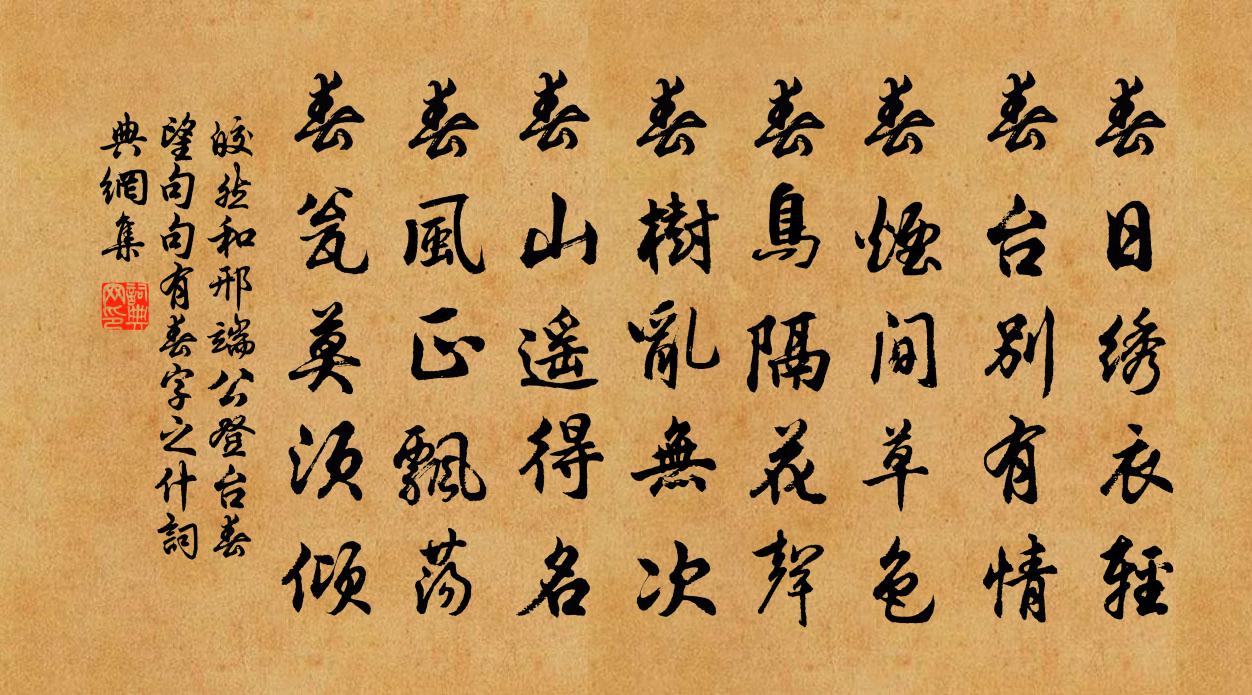 春日绣衣輕
春台別有情
春煙间草色
春鳥隔花聲
春樹亂無次
春山遥得名
春風正飄荡
春瓮莫須傾
皎然和邢端公登台春
望句句有春字之什詞
典網集
詞典網印